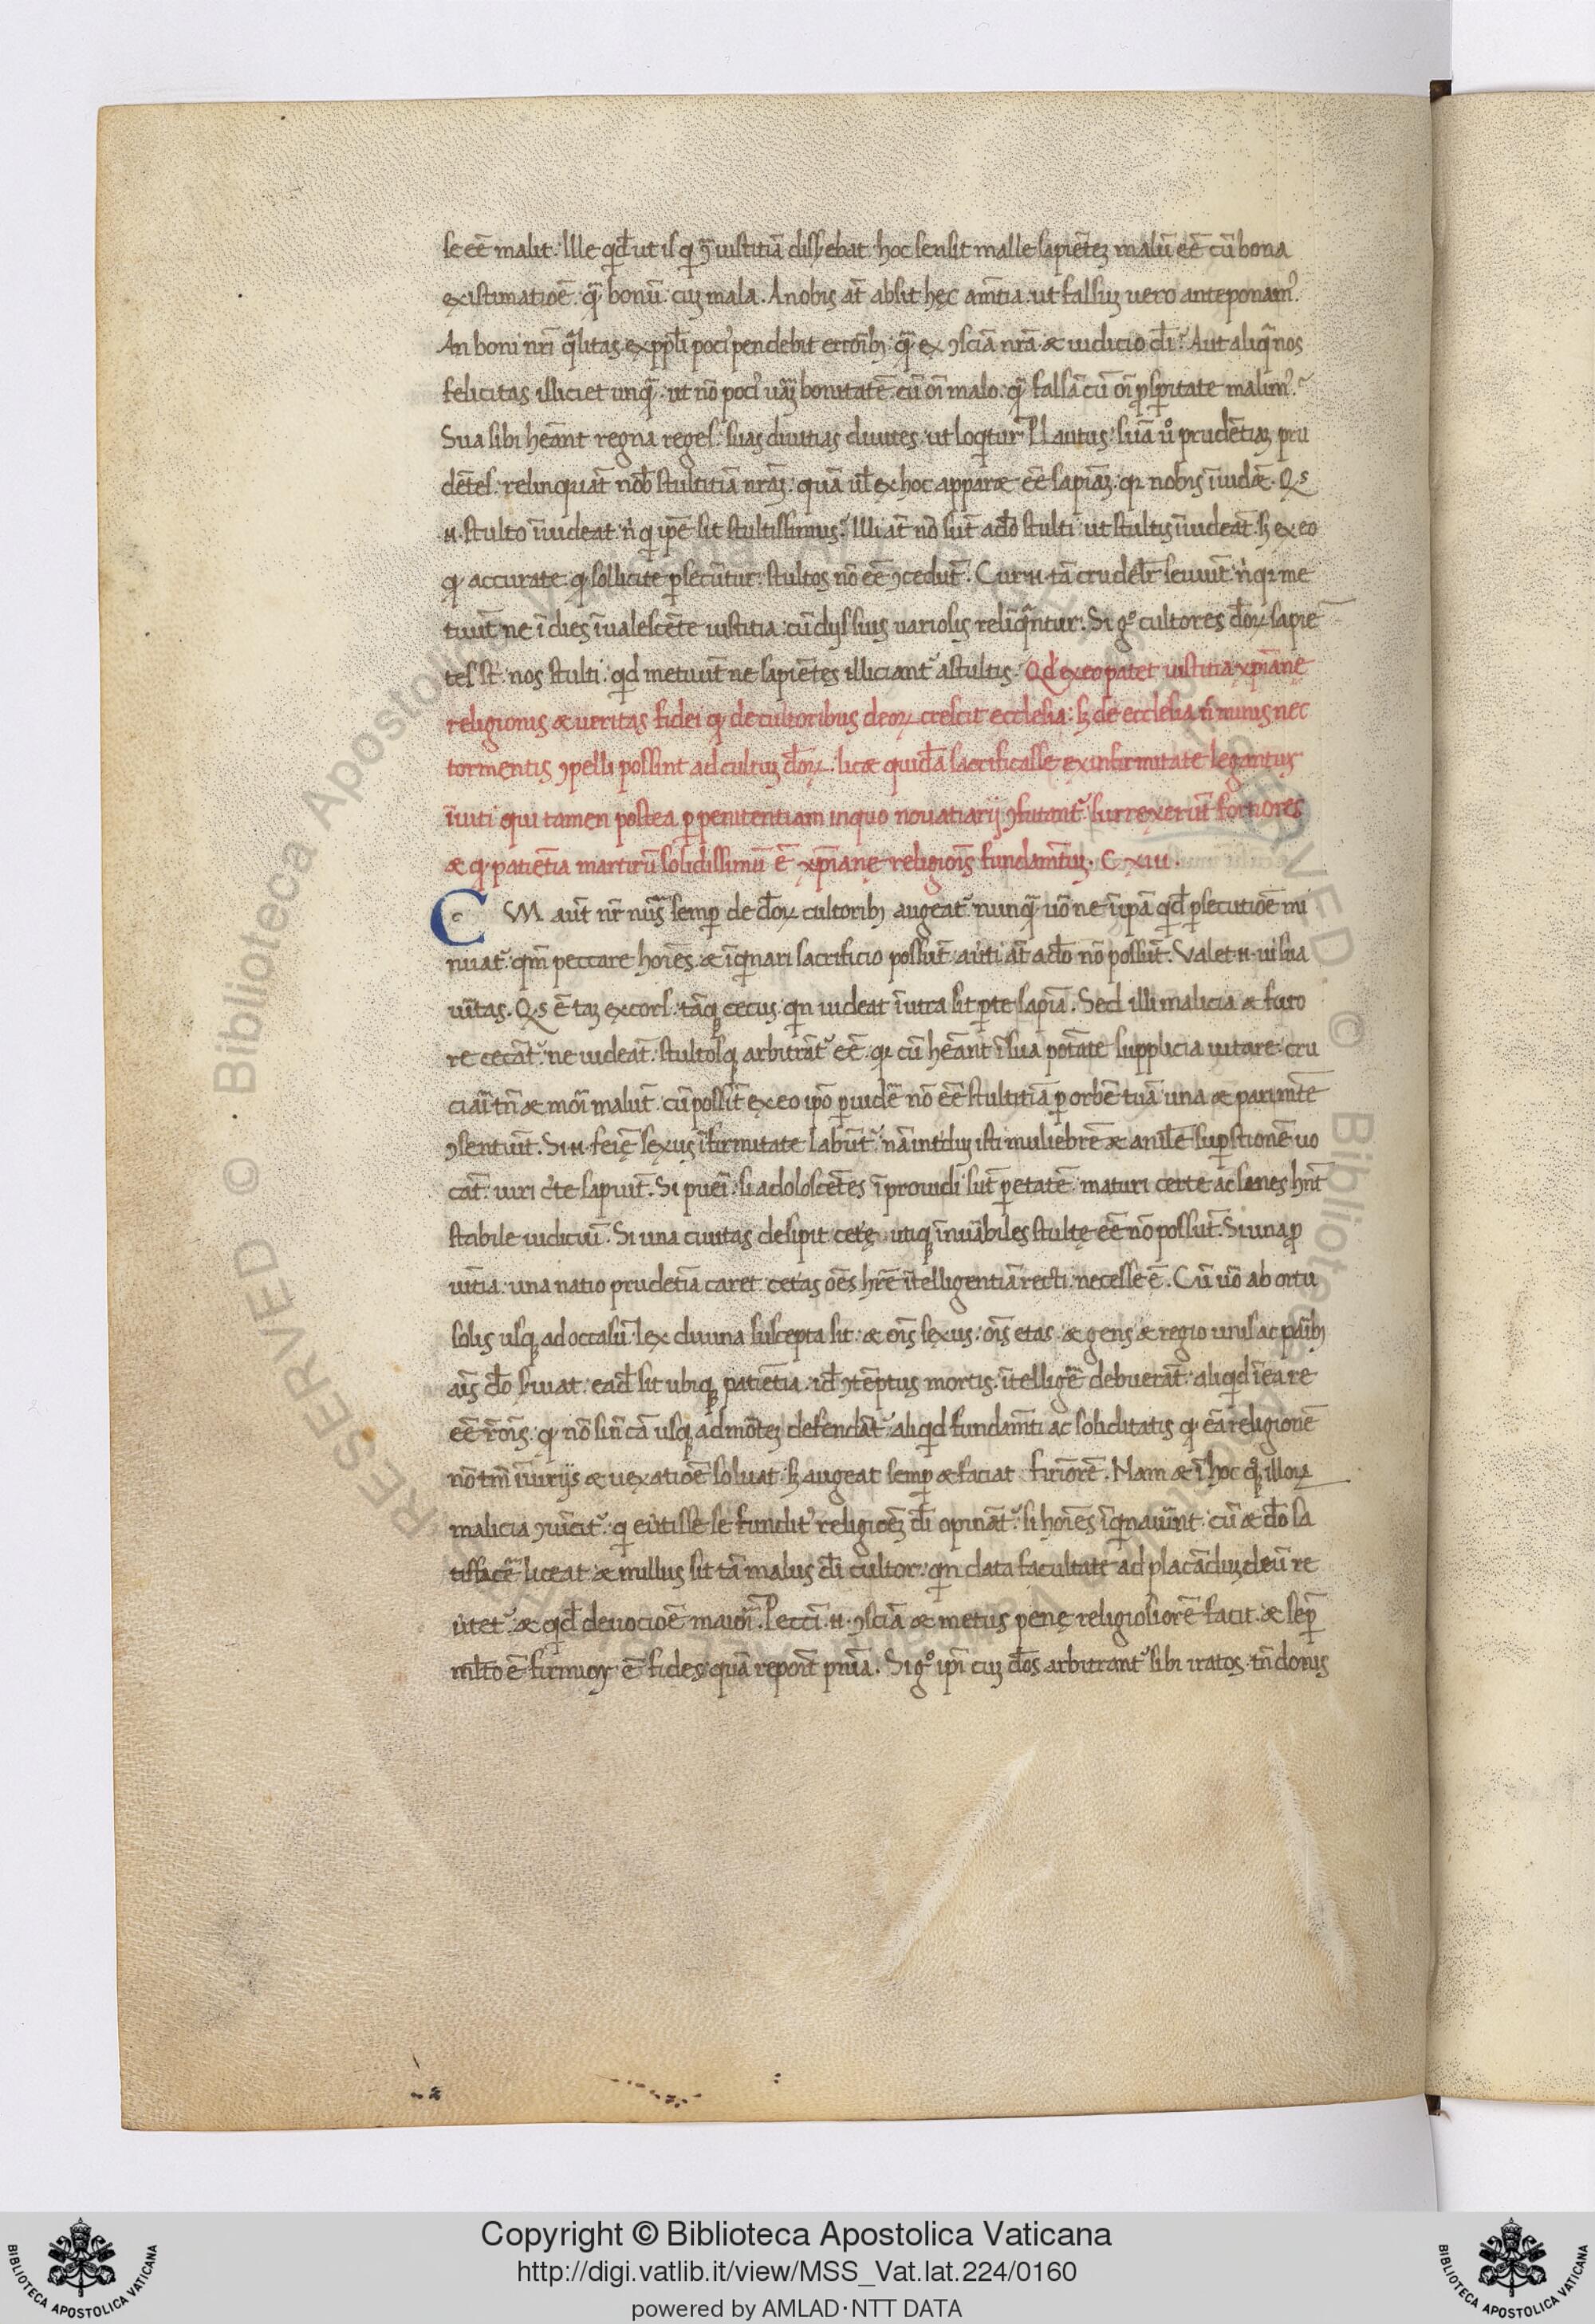 se eē malit. Ille qd̄ ut is q ꝯ̄ iustitiā disserebat. hoc sensit malle sapiētēz malū eē cū bona
existimatiōē. q̄ bonū. cuz mala. A nobis at̄ absit hęc am̄tia. ut falsuz vero anteponam᾿.
An boni nr̄i q̄litas ex pp̄li poci᾿ pendebit errorib; q̄ ex ꝯsciā nr̄a. & iudicio dī? Aut aliq̄ nos
felicitas illiciet unq̄. ut nō poci᾿ uāz bonitatē. cū oī malo. q̄ falsā cū oī ꝓsꝑitate malim᾿?
Sua sibi heānt regna reges. suas diuitias diuites. ut loqitur Plautus. suā u᾿o prudētiaz pru
dētes. relinquāt nōb stultitiā nrāz. quā ul̄ ex hoc apparæ eē sapiāz. qꝛ nobis īuidæ. Qˢ
.n. stulto īuideat. n᾿ q ipē sit stultissimus? Illi at̄ nō sūt adō stulti. ut stultis īuideāt. sꝫ ex eo
q accurate. q sollicite ꝑsecūtur. stultos nō eē ꝯcedūt. Cur .n. tā crudelr̄ seuiūt. n᾿ qꝛ me
tuūt ne ī dies īualescēte iustitia. cū dijs suis uariosis reliq̄ntur. Si g᾿ cultores dōꝝ sapiē
tes st̄. nos stulti. qd metuūt ne sapiētes illiciant᾿ a stultis. Qd᾿ ex eo patet iustitia xp̄ianę
religionis & ueritas fidei q de cultoribus deoꝝ crescit ecclesia. sꝫ de ecclesia n̄ minus nec
tormentis ꝯpelli possint ad cultuz dōꝝ. licæ quidā sacrificasse ex infirmitate legantur
īuiti qui tamen postea ꝑ penitentiam in quo nouatiarij ꝯfutant᾿ surrexerūt fortiores
& q. patiētia martirū solidissimū ē xp̄ianę religiōis fundamētuz. C XIII.
CVM. aūt nr̄ nūs semꝑ de dōꝝ cultorib; augeat᾿. nunq̄ uō ne ī ip̄a qd̄ ꝑsecutiōē mi
nuat᾿. qm̄ peccare hoīes. & īq̄nari sacrificio possūt. au᾿ti at̄ a dō nō possūt. Valet .n. ui sua
uītas. Qˢ ē taz excors. tāqꝫ cecus. qn uideat ī utra sit ꝑte sapiā. Sed illi malicia & furo
re cecāt᾿. ne uideāt. stultosqꝫ arbitrāt᾿ eē. qꝛ cū heānt ī sua potāte supplicia uitare. cru
ciāi tn̄ & mōi malūt. cū possīt ex eo ipō ꝑuidē nō eē stultitiā ꝑ orbē tuā una & parim̄te
ꝯsentiūt. Si .n. feīę sexus īfirmitate labūt᾿. nā int᾿duz isti muliebrē & anilē suꝑstionē uo
cāt. uiri c᾿te sapiūt. Si puei. si adoloscētes īprouidi sūt ꝑ etatē. maturi certe ac senes hn̄t
stabile iudiciū. Si una ciuitas desipit. cetę utiqꝫ īnūabiles stultę eē nō possūt. Si una ꝓ
uītia. una natio prudētiā caret. cetas oēs hrē ītelligentiā recti. necesse ē. Cū uō ab ortu
solis usqꝫ ad occasū. lex diuina suscepta sit. & oīs sexus. oīs etas. & gens & regio unis ac pāib;
aīs dō s᾿uiat. eadē sit ubiqꝫ patiētia. idē ꝯtēptus mortis. ītelligē debuerāt. aliqd ī ea re
eē rōis. q nō sin̄ cā usqꝫ ad mōtēz defendāt᾿. aliqd fundamti ac soliditatis. q eā religionē
nō tm̄ īiurijs & uexatiōē soluat. sꝫ augeat semꝑ & faciat firmiorē. Nam & ī hoc qqꝫ illoꝝ
malicia ꝯuīcit᾿. q eu᾿tisse se fundit᾿ religiōēz dī opināt᾿. si hoīes īq̄nauūnt. cū & dō sa
tisfacē liceat. & nullus sit tā malus dī cultor. qn data facultate ad placāduz deū re
u᾿tet᾿. & qd̄ deuociōē maiori. Pecci .n. ꝯsciā & metus penę religiosiorē facit. & sēꝑ
ml̄to ē firmior ē fides. quā repoit pn̄ia. Si g᾿ ipi cuz dōs arbitrant᾿ sibi iratos. tn̄ donis
Copyright © Biblioteca Apostolica Vaticana
http://digi.vatlib.it/view/MSS_Vat.lat.224/0160
powered by AMLAD·NTT DATA